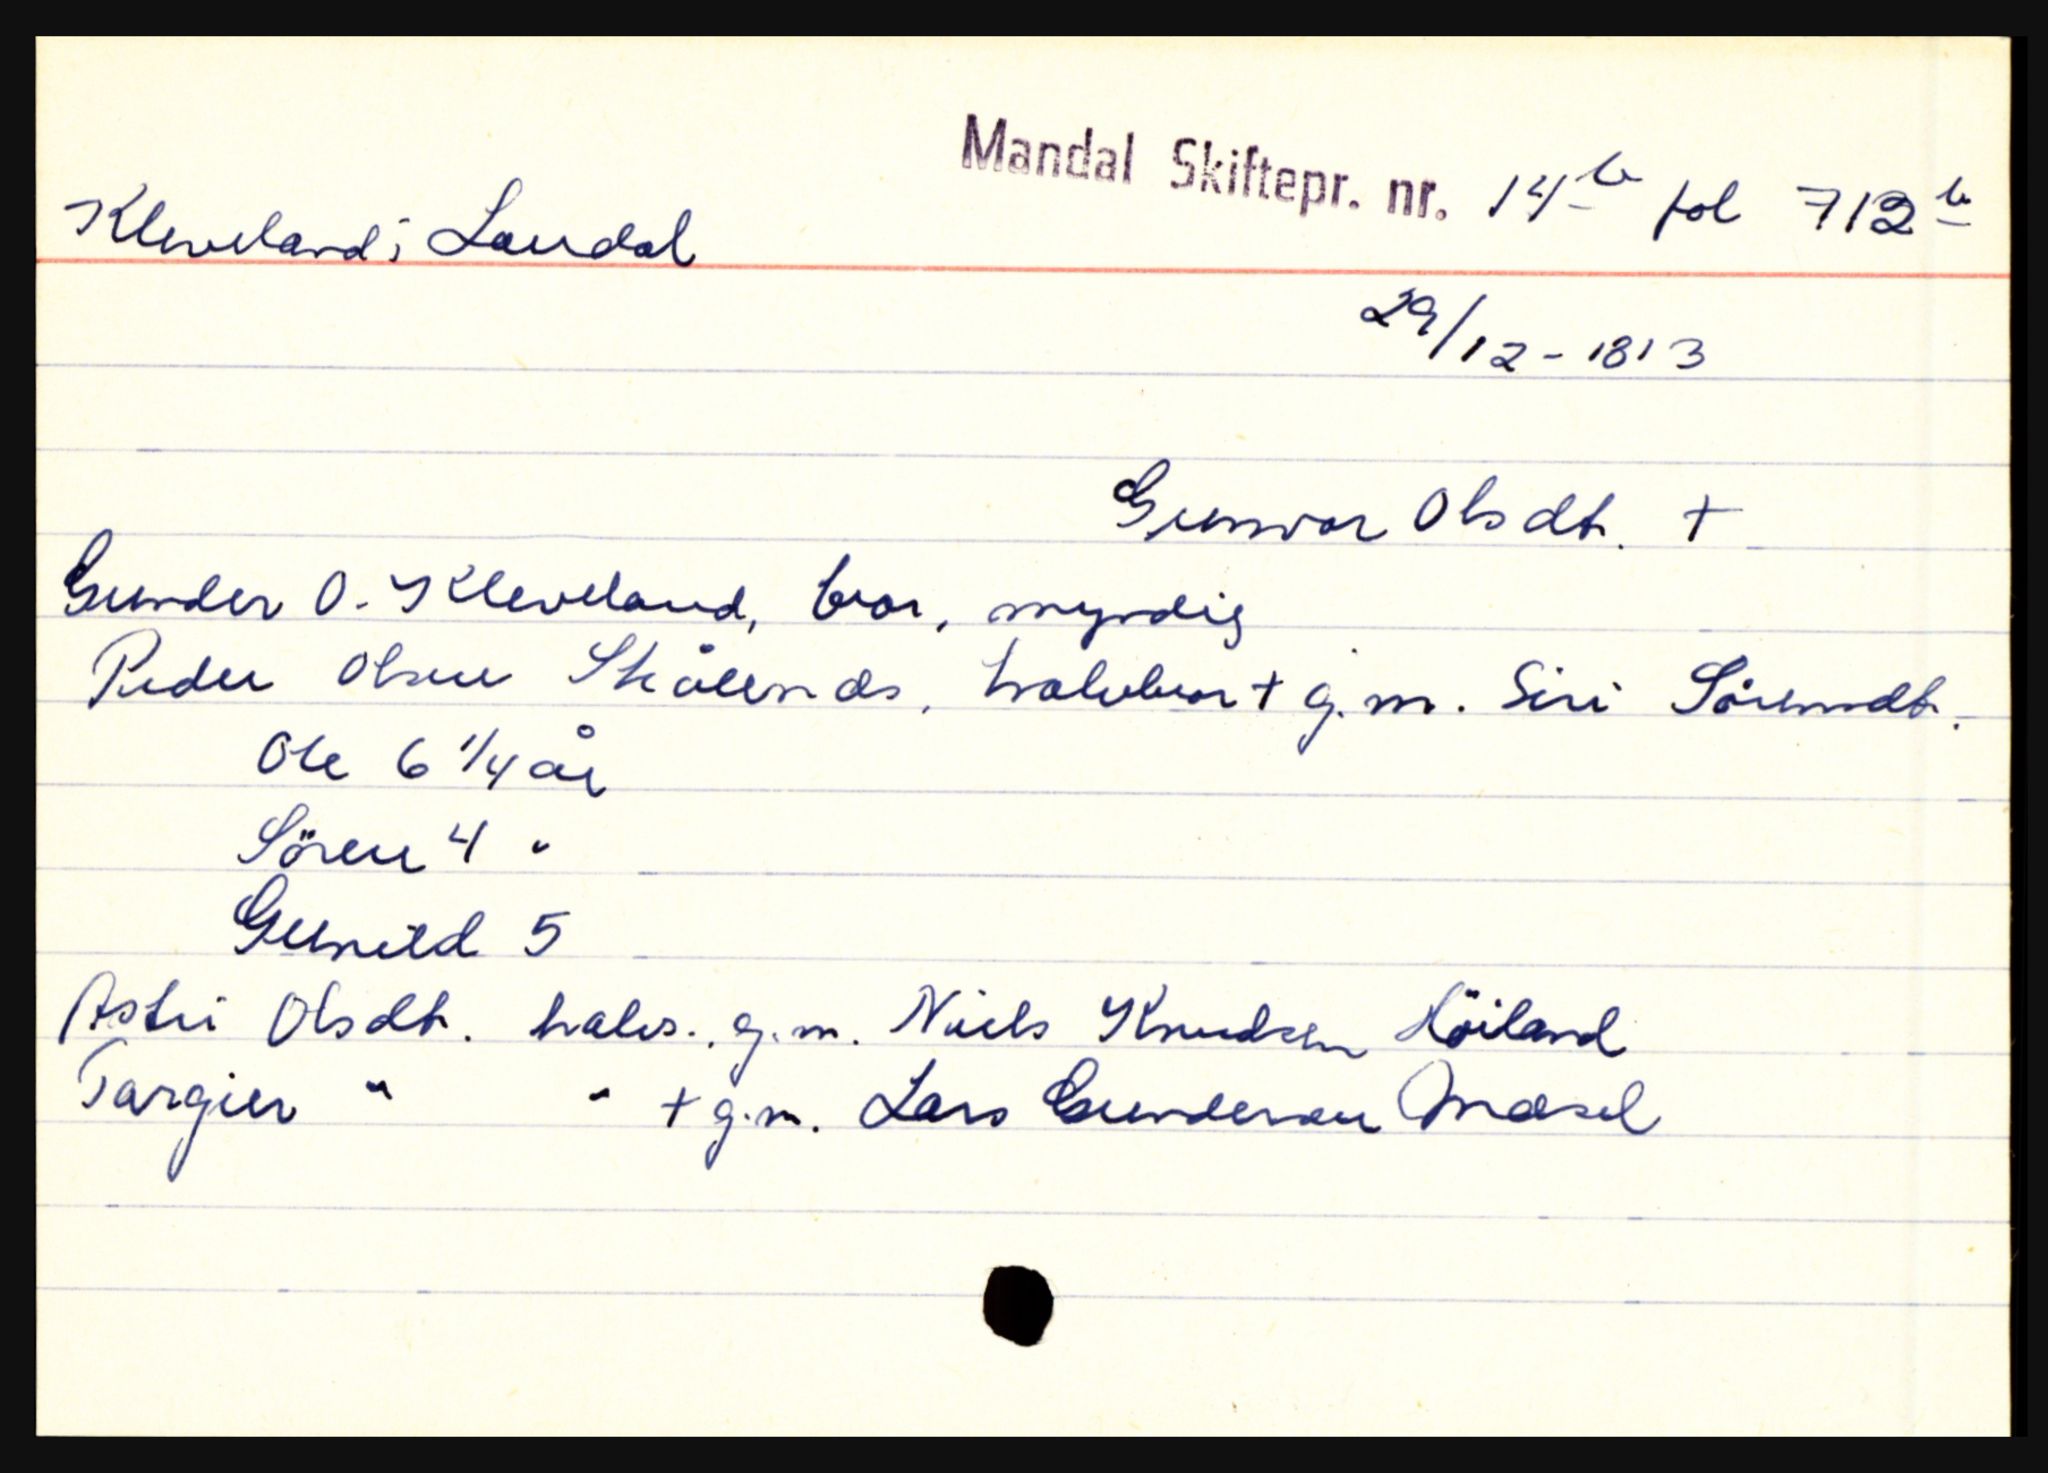 Mandal Skiftepr. nr. 14 b fol 712 b
Kleveland i Laudal
29/12-1813
Gunvor Olsdtr. +
Gunder O. Kleveland, bror, myndig
Peder Olsen Skålands, halvbror + g.m. Siri Sörensdtr.
Ole 6 1/4 år
Sören 4 "
Gunild 5
Astri Olsdtr. halvs., g.m. Niels Knudsen Höiland
Targier " " + g.m. Lars Gundersen Mæsel